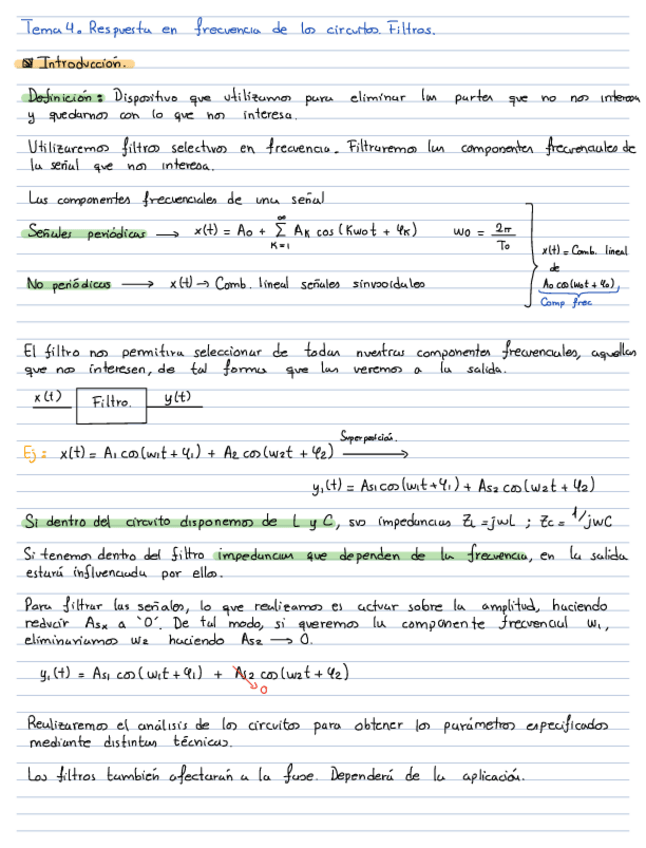 Tema 4. Respuesta en frecuencia de los circuitos. Filtros.
Introducción.
Definición: Dispositivo que utilizamos para eliminar las partes que no nos interesan
y quedarnos con lo que nos interesa.
Utilizaremos filtros selectivos en frecuencia. Filtraremos las componentes frecuenciales de
la señal que nos interesa.
Las componentes frecuenciales de una señal
Señales periódicas → x(t) = A₀ + ∞ Σ K=1 Aₖ cos (Kw₀t + φₖ) w₀ = 2π/T₀
x(t) = Comb. lineal
de
No periódicas → x(t) → Comb. lineal señales sinusoidales
A₀ cos(w₀t + φ₀),
Comp frec
El filtro nos permitira seleccionar de todas nuestras componentes frecuenciales, aquellas
que nos interesen, de tal forma que las veremos a la salida.
x(t) Filtro. y(t)
Ej: x(t) = A₁ cos(w₁t + φ₁) + A₂ cos(w₂t + φ₂) Superposición. →
y₁(t) = As₁ cos(w₁t + φ₁) + As₂ cos(w₂t + φ₂)
Si dentro del circuito disponemos de L y C, sus impedancias ZL = jwL ; Zc = 1/jwC
Si tenemos dentro del filtro impedancias que dependen de la frecuencia, en la salida
estará influenciada por ellos.
Para filtrar las señales, lo que realizamos es actuar sobre la amplitud, haciendo
reducir Asₓ a '0'. De tal modo, si queremos la componente frecuencial w₁,
eliminariamos w₂ haciendo As₂ → 0.
y₁(t) = As₁ cos(w₁t + φ₁) + As₂ cos(w₂t + φ₂)
0
Realizaremos el análisis de los circuitos para obtener los parámetros especificados
mediante distintas técnicas.
Los filtros también afectarán a la fase. Dependerá de la aplicación.